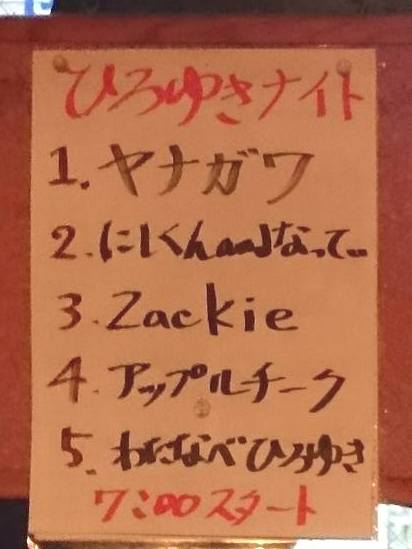 ひろゆきナイト
1. ヤナガワ
2. にしくんandなって..
3. Zackie
4. アップルチーク
5. わたなべひろゆき
7:00スタート